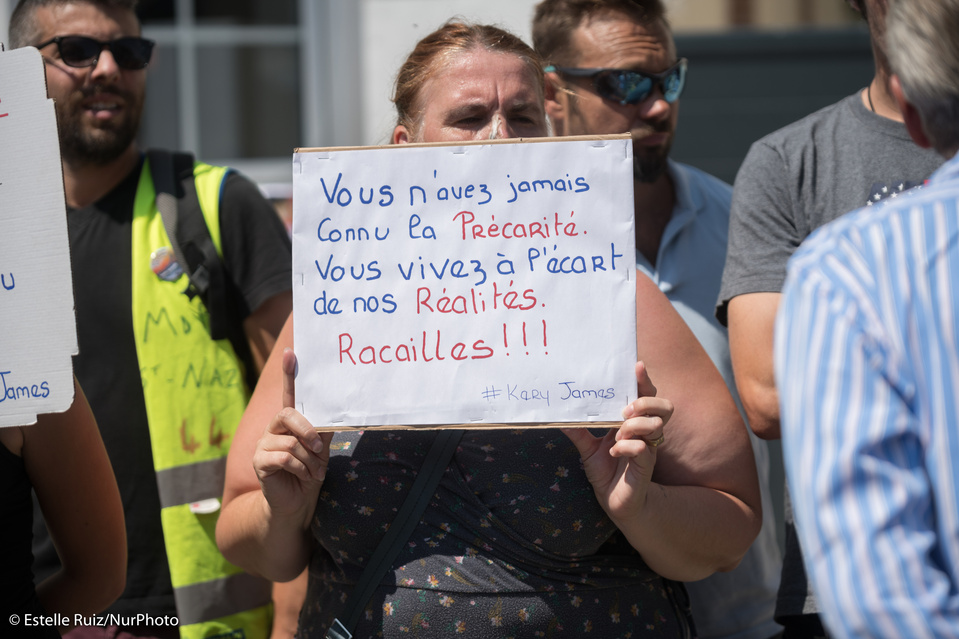 Vous n'avez jamais
Connu la Précarité.
Vous vivez à l'écart
de nos Réalités.
Racailles!!!
#Kery James
u
James
44
© Estelle Ruiz/NurPhoto